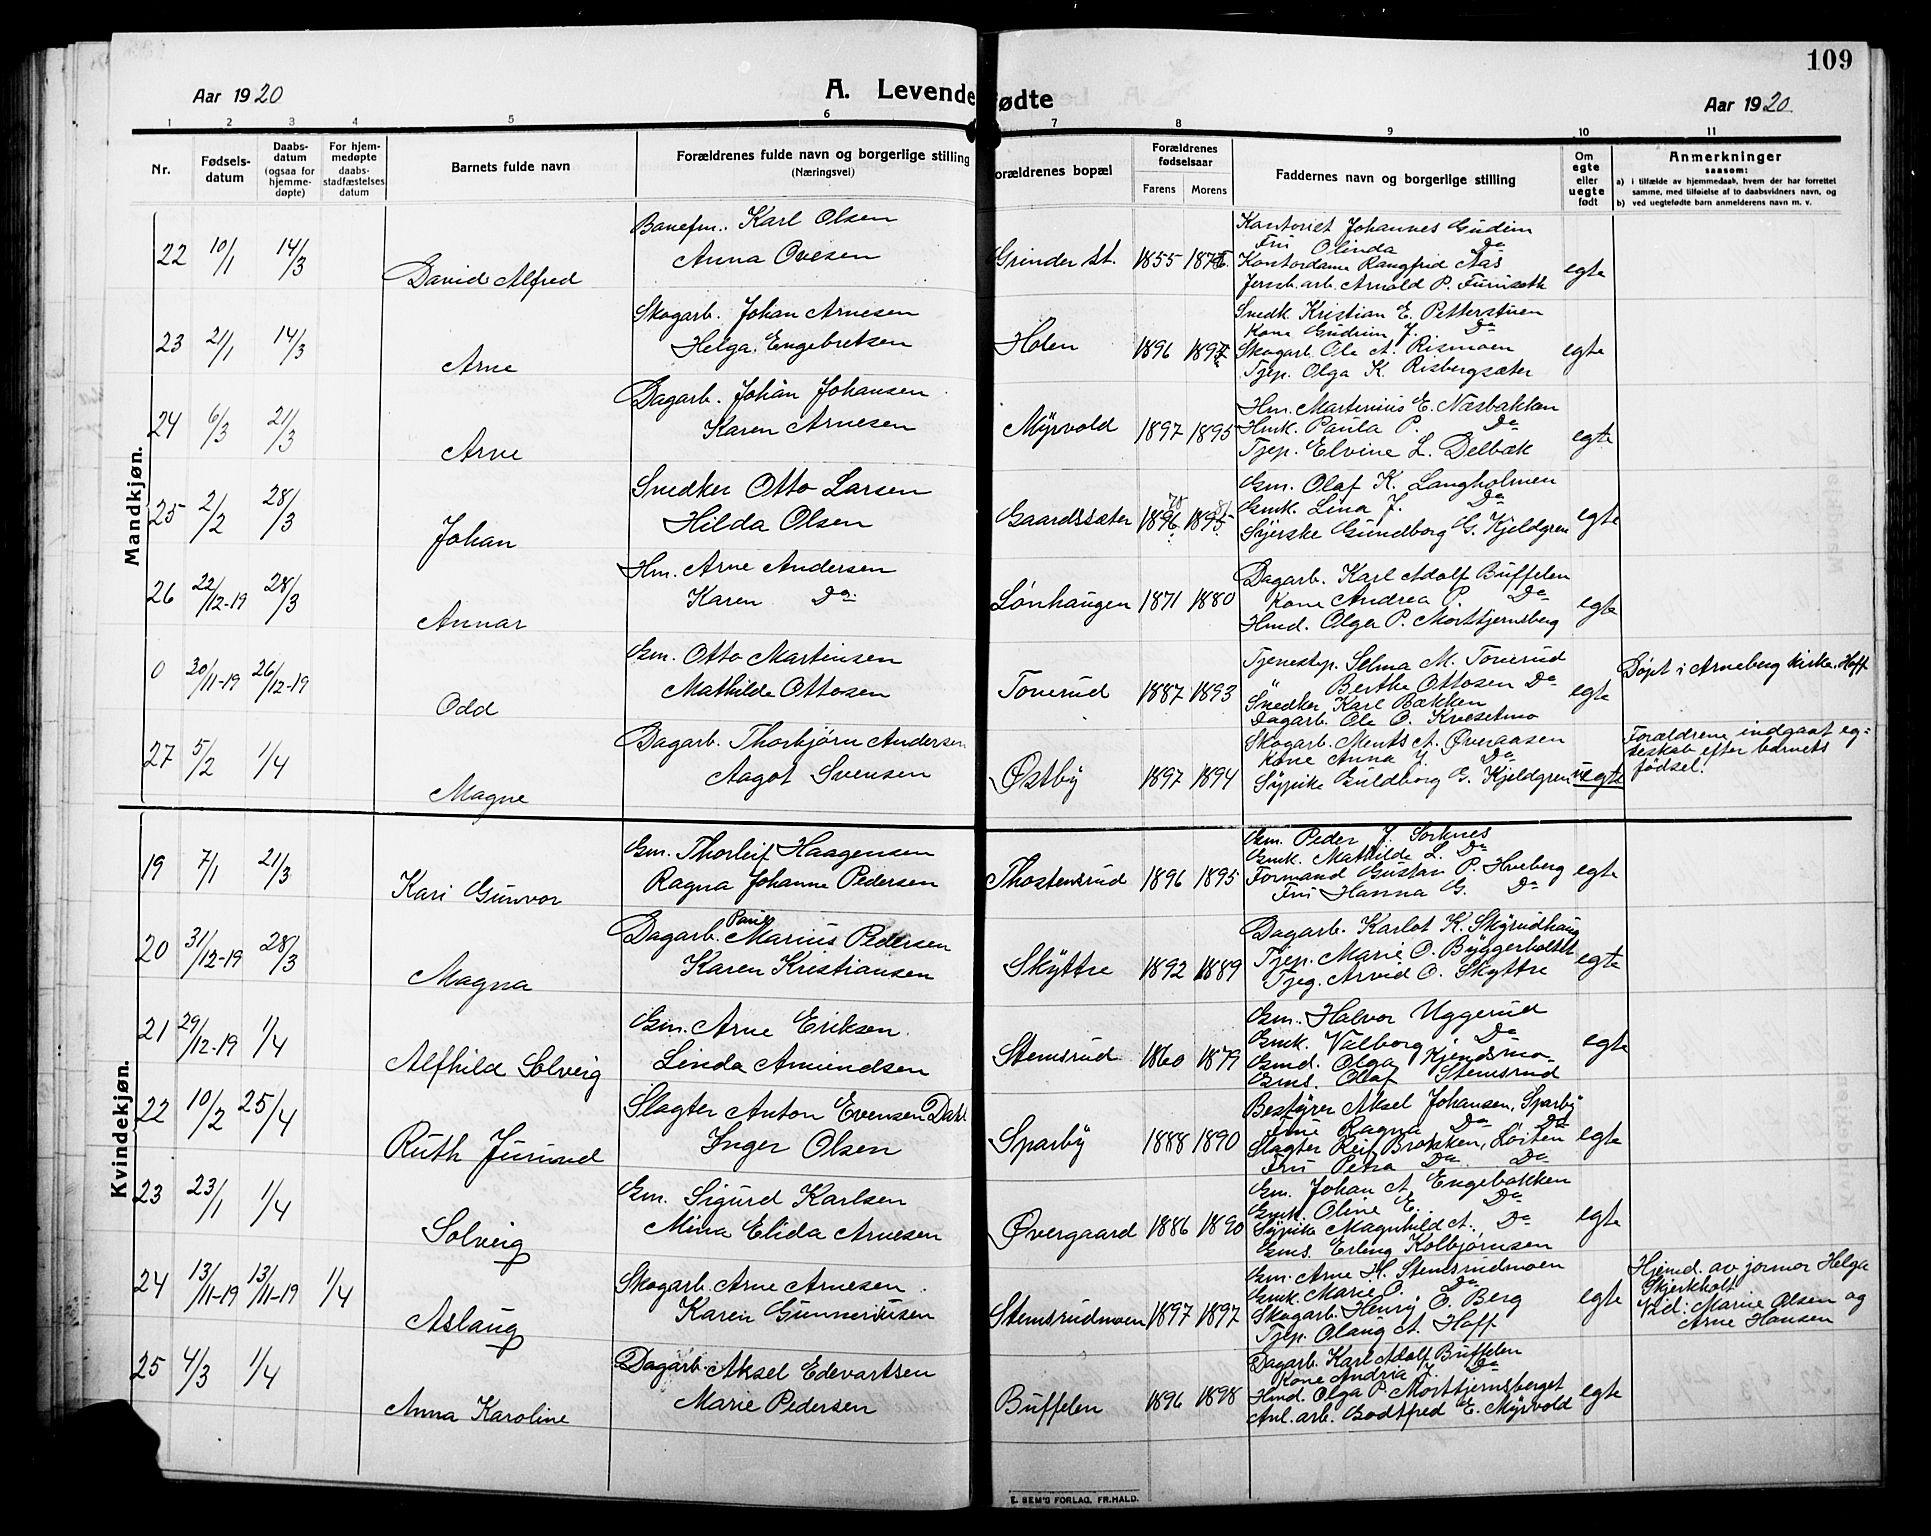 109
Aar 1920
A. Levendefødte
Aar 1920.
1 2 3 4 5 6 7 8 9 10 11
Nr.
Fødsels-
datum
Daabs-
datum
(ogsaa for
hjemme-
døpte)
For hjem-
medøpte
daabs-
stadfæstelses
datum
Barnets fulde navn
Forældrenes fulde navn og borgerlige stilling
(Næringsvei)
Forældrenes bopæl
Forældrenes
fødselsaar
Farens Morens
Faddernes navn og borgerlige stilling
Om
egte
eller
uegte
født
Anmerkninger
saasom:
a) i tilfælde av hjemmedaab, hvem der har forrettet
samme, med tilføielse af to daabsvidners navn, og
b) ved uegtefødte barn anmelderens navn m. v.
Mandkjøn.
22 10/1 14/3 David Alfred
Banefm. Karl Olsen
Anna Ovesen
Grinder st. 1855
Kontorist Johannes Gudim
Fru Olinda Do
Kontordame Rangfrid Aas
Jernb. arb. Arnold P. Furuseth
egte
23 21/1 14/3 Arne
Skogarb. Johan Arnesen
Helga Engebretsen
Holen 1896
Snedk. Kristian E. Petterstuen
Kone Gudrun J. Do
Skogarb. Ole A. Rismoen
Tjep. Olga K. Risbergsæter
egte
24 6/3 21/3 Arne
Dagarb. Johan Johansen
Karen Arnesen
Myrvold 1897 1895
Hm. Martinius E. Næsbakken
Hmk. Paula P. Do
Tjep. Elvine L. Delbæk
egte
25 2/2 28/3 Johan
Snedker Otto Larsen
Hilda Olsen
Gaardssæter 1896 1895
Gm. Olaf K. Langholmen
Gmk. Lina J. Do
Syerske Gundborg G. Kjeldgren
egte
26 22/12-19 28/3 Annar
Hm. Arne Andersen
Karen Do
Lønhaugen 1871 1880
Dagarb. Karl Adolf Buffelen
Kone Andrea P. Do
Hmd. Olga P. Morttjernsberg
egte
0 30/11-19 26/12-19 Odd
Gm. Otto Martinsen
Mathilde Ottosen
Toverud 1887 1893
Tjenestep. Selma M. Toverud
Berthe Ottosen Do
Snedker Karl Bækken
Dagarb. Ole O. Kvesetmo
egte
Døpt i Arneberg kirke, Hoff
27 5/2 1/4 Magne
Dagarb. Thorbjørn Andersen
Aagot Svensen
Østby 1897 1894
Skogarb. Ments A. Øveraasen
Kone Anna J. Do
Sypike Guldborg G. Kjeldgren
uegte
Forældrene indgaat eg-
teskab efter barnets
fødsel.
Kvindekjøn.
19 7/1 21/3 Kari Gunvor
Gm. Thorleif Haagensen
Ragna Johanne Pedersen
Thostensrud 1896 1895
Gm. Peder J. Sorknes
Gmk. Mathilde L. Do
Formand Gustav P. Hveberg
Fru Hanna G. Do
egte
20 31/12-19 28/3 Magna
Dagarb. Marius Pedersen
Karen Kristiansen
Skyttre 1892 1889
Dagarb. Karlot K. Skyrudhaug
Tjep. Marie O. Byggerholtlt
Tjeg. Arvid O. Skyttre
egte
21 29/12-19 1/4 Alfhild Solveig
Gm. Arne Eriksen
Linda Amundsen
Stemsrud 1860 1879
Gm. Halvor Uggerud
Gmk. Valborg Do
Gmd. Olga Kjendsmo
Gms. Olaf Stemsrud
egte
22 10/2 25/4 Ruth Jurund
Slagter Anton Evensen Dahl
Inger Olsen
Sparby 1888 1890
Bestyrer Aksel Johansen, Sparby
Frue Ragna Do Do
Slagter Reif Brokken, Løiten
Fru Petra Do Do
egte
23 23/1 1/4 Solveig
Gm. Sigurd Karlsen
Mina Elida Arnesen
Øvergaard 1886 1890
Gm. Johan A. Engebakken
Gmk. Oline E. Do
Sypike Magnhild A. Do
Gms. Erling Kolbjørnsen
egte
24 13/11-19 13/11-19 1/4 Aslaug
Skogarb. Arne Arnesen
Karen Gunneriusen
Stemsrudmoen 1897 1897
Gm. Arne H. Stemsrudmoen
Gmk. Marie O. Do
Skogarb. Henry O. Berg
Tjep. Olaug A. Hoff
egte
Hjemd. av jormor Helga
Skjerkholt
Vid: Marie Olsen og
Arne Hansen
25 4/3 1/4 Anna Karoline
Dagarb. Aksel Edevartsen
Marie Pedersen
Buffelen 1896 1898
Dagarb. Karl Adolf Buffelen
Kone Andria J. Do
Hmd. Olga P. Morttjernsberget
Anl. arb. Bodtfred E. Myrvold
egte
E. SEM'S FORLAG, FR.HALD.